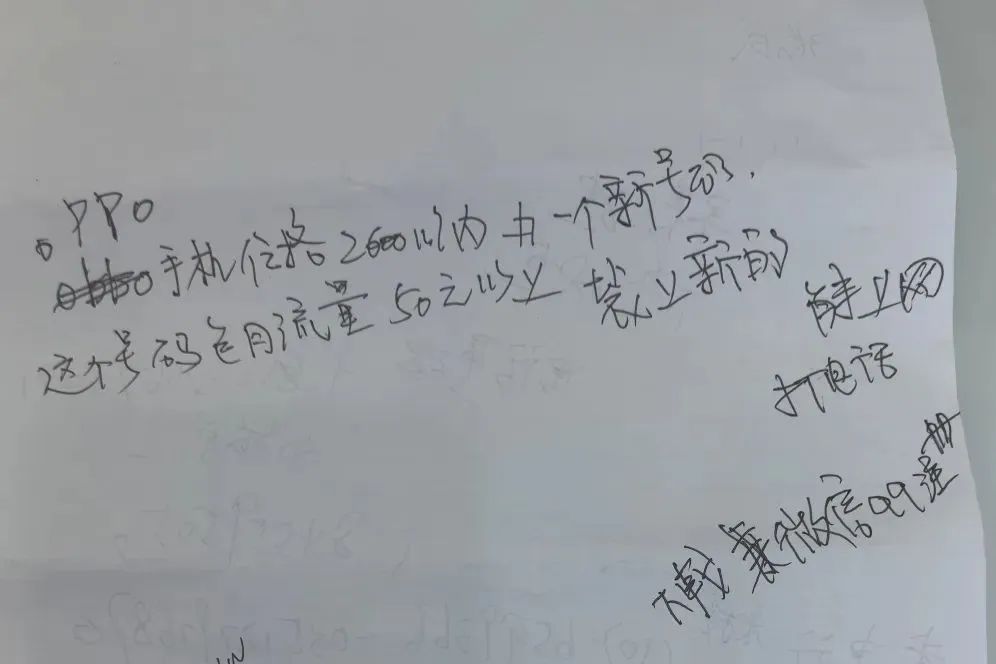 OPPO
手机价格2600以内 办一个新号码.
这个号码包月流量50元以上 装上新的
能上网
打电话
下载 装微信QQ 注册